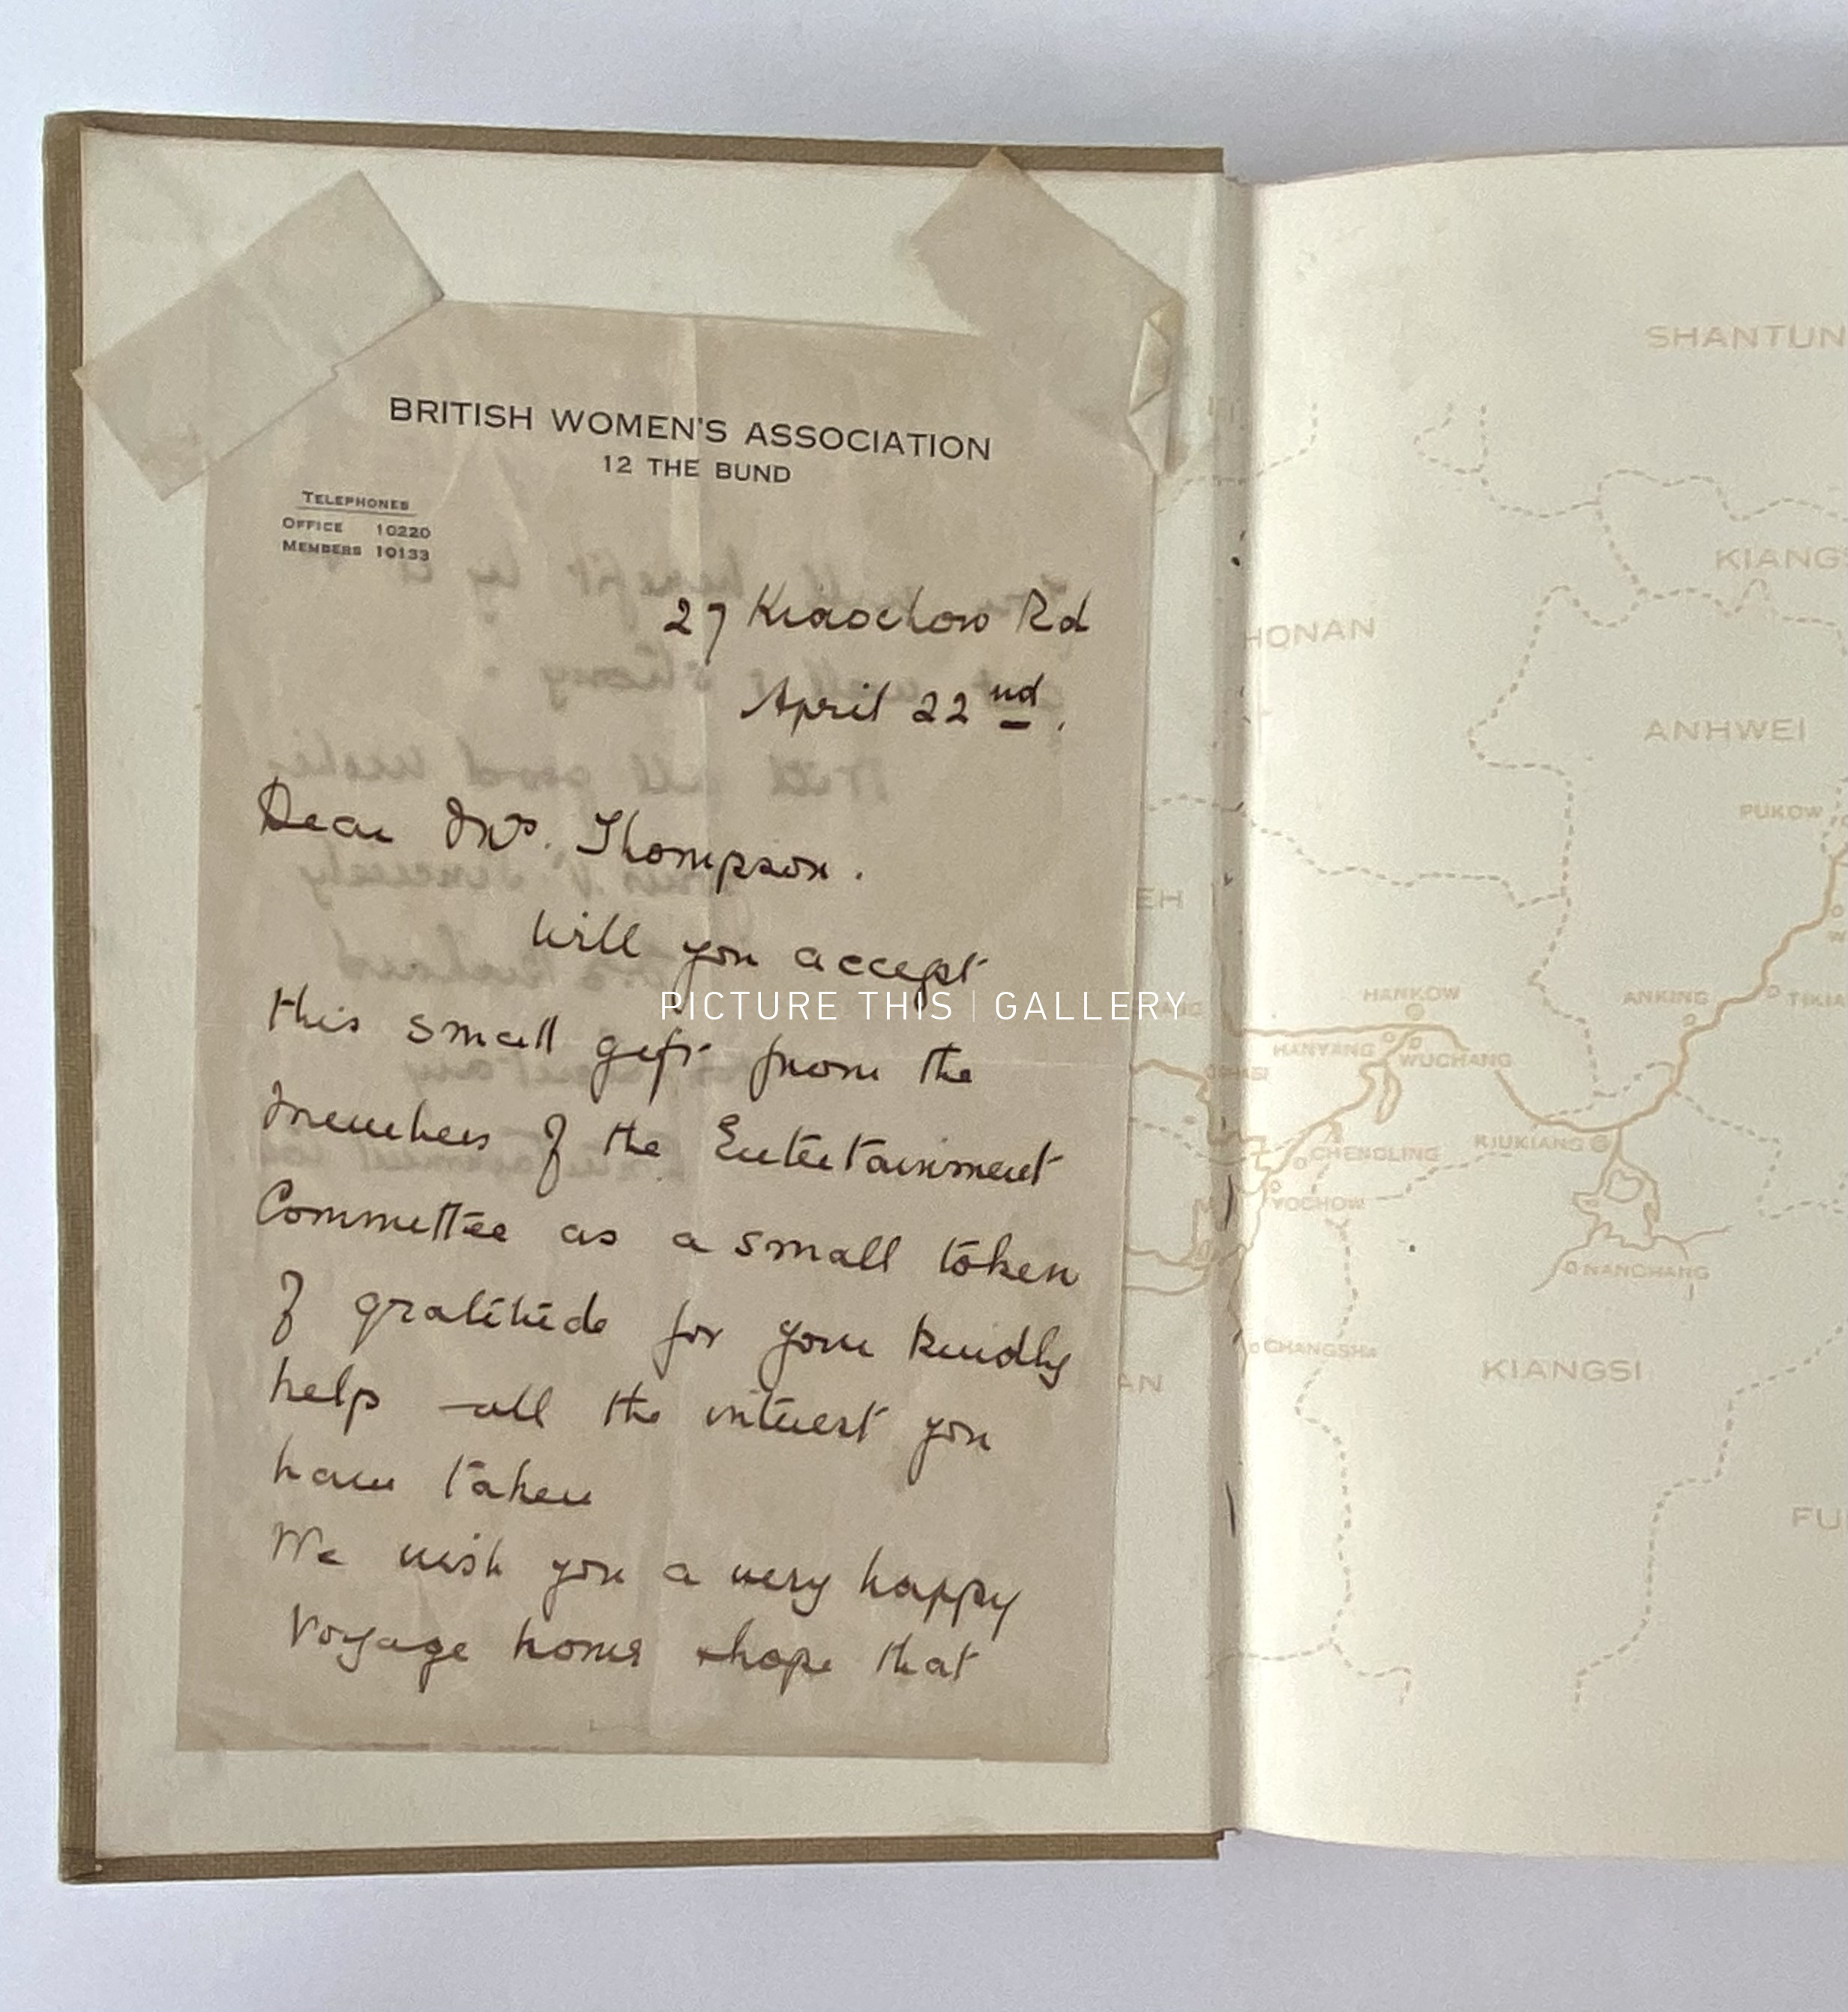 BRITISH WOMEN'S ASSOCIATION
12 THE BUND
TELEPHONES
OFFICE 10220
MEMBERS 10133
27 Kiaochow Rd
April 22nd.
Dear Mrs. Thompson.
Will you accept
this small gift from the
members of the Entertainment
Committee as a small token
of gratitude for your kindly
help – all the interest you
have taken
We wish you a very happy
voyage home + hope that
PICTURE THIS | GALLERY
SHANTUN
KIANGS
HONAN
ANHWEI
PUKOW
EH
HANKOW
ANKING
TIKIA
HANYANG
WUCHANG
KIUKIANG
CHENGLING
YOCHOW
NANCHANG
CHANGSHA
KIANGSI
AN
FU